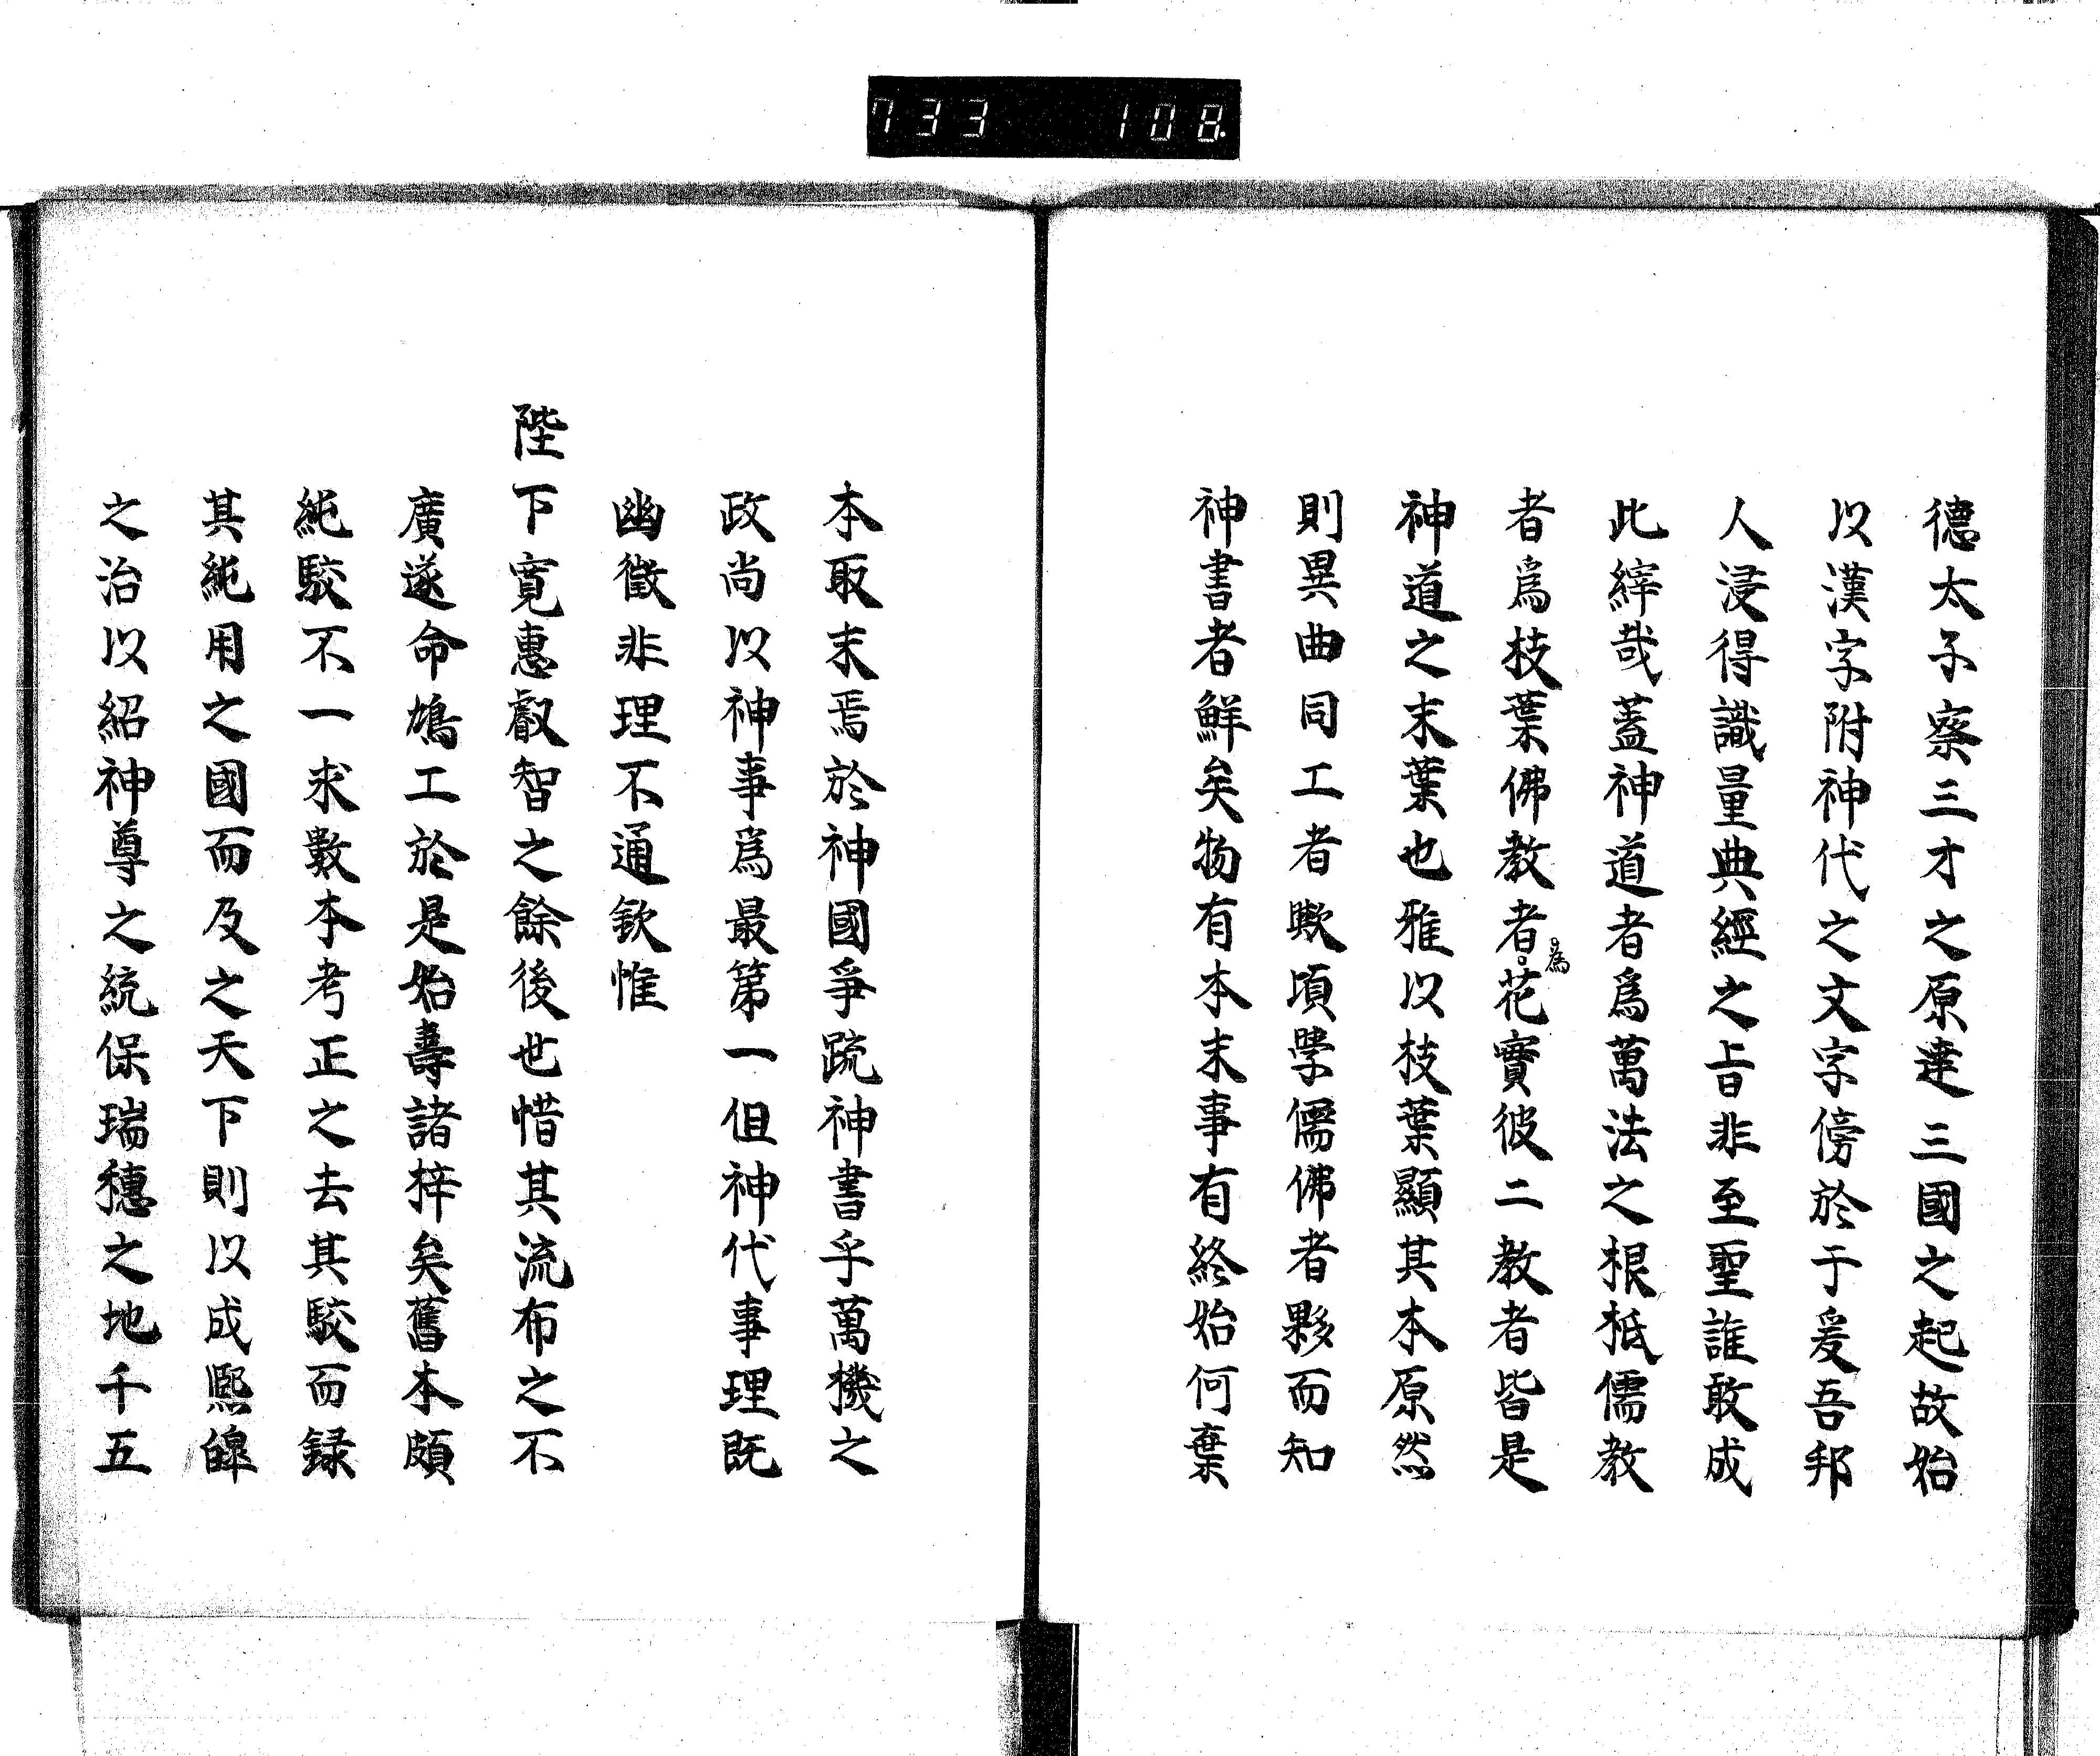 733 108
德太子察三才之原達三國之起故始
以漢字附神代之文字傍於于爰吾邦
人浸得識量典經之旨非至聖誰敢成
此縡哉蓋神道者爲萬法之根柢儒教
者爲枝葉佛教者爲花實彼二教者皆是
神道之末葉也雅以枝葉顯其本原然
則異曲同工者歟頃學儒佛者夥而知
神書者鮮矣物有本末事有終始何棄
本取末焉於神國爭疏神書乎萬機之
政尚以神事爲最第一但神代事理既
幽微非理不通欽惟
陛下寛惠叡智之餘後世惜其流布之不
廣遂命鳩工於是始壽諸梓矣舊本頗
純駮不一求數本考正之去其駮而録
其純用之國而及之天下則以成熙皞
之治以紹神尊之統保瑞穗之地千五